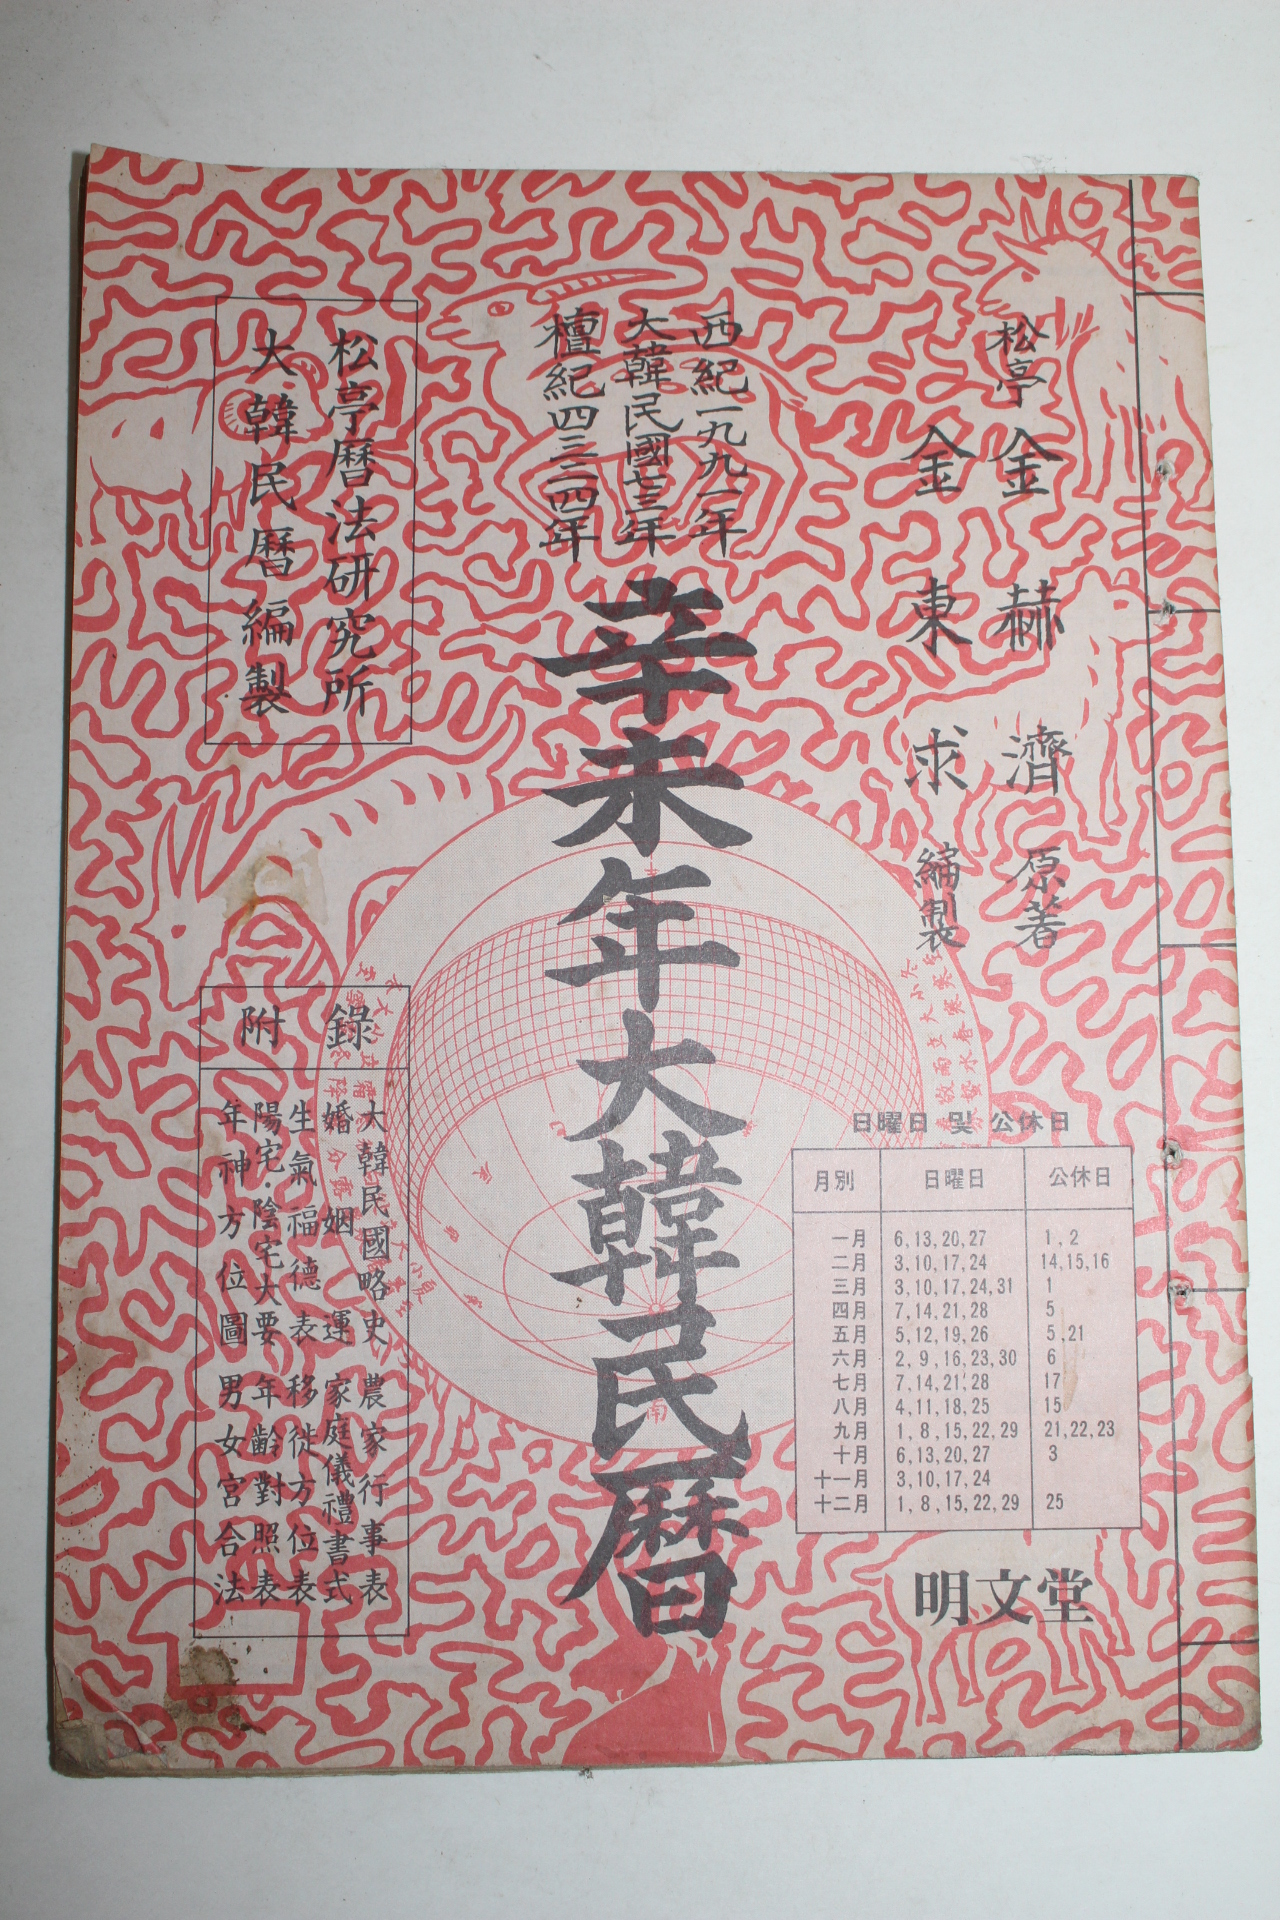 松亭 金赫濟 原著
金東求 編製
西紀一九九一年
大韓民國七三年
檀紀四三二四年
辛未年大韓民曆
松亭曆法研究所
大韓民曆編製
附錄
大韓民國略史 農家行事表
婚姻運 家庭儀禮書式
生氣福德表 移徙方位表
陽宅·陰宅大要 年齡對照表
年神方位圖 男女宮合法
日曜日 및 公休日
月別 日曜日 公休日
一月 6,13,20,27 1,2
二月 3,10,17,24 14,15,16
三月 3,10,17,24,31 1
四月 7,14,21,28 5
五月 5,12,19,26 5,21
六月 2,9,16,23,30 6
七月 7,14,21,28 17
八月 4,11,18,25 15
九月 1,8,15,22,29 21,22,23
十月 6,13,20,27 3
十一月 3,10,17,24
十二月 1,8,15,22,29 25
明文堂
南